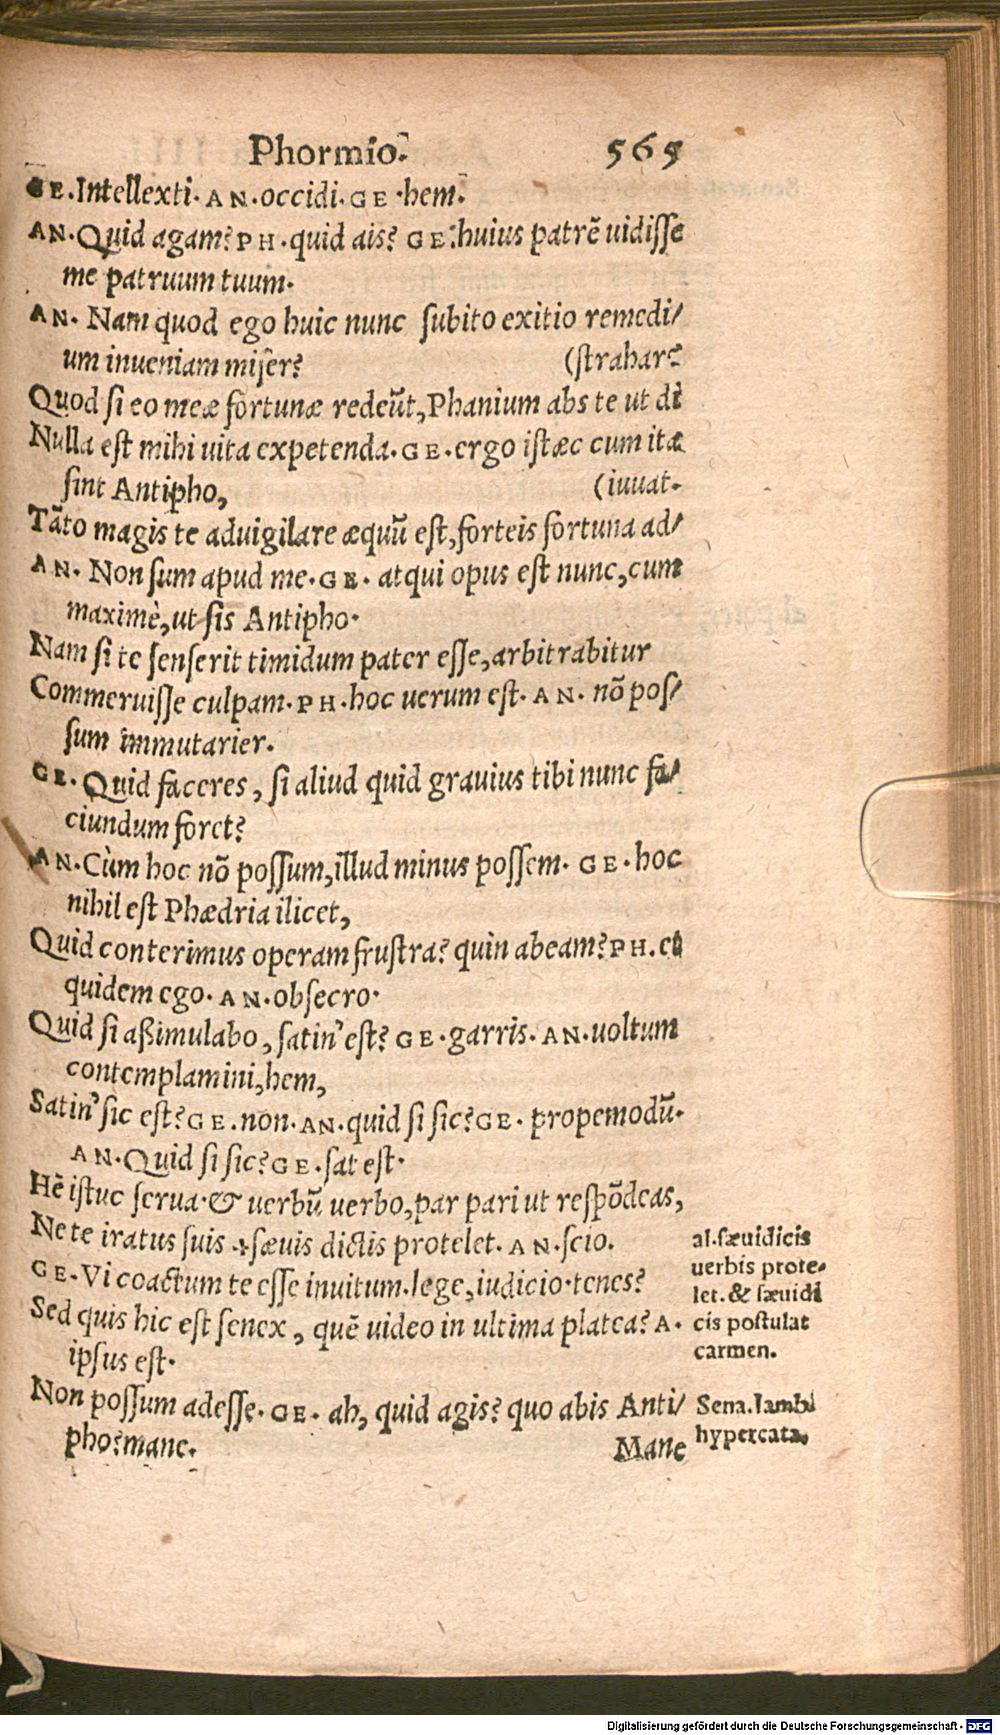 Phormio. 565
GE. Intellexti. AN. occidi. GE. hem.
AN. Quid agam? PH. quid ais? GE. huius patrẽ uidisse
me patruum tuum.
AN. Nam quod ego huic nunc subito exitio remedi/
um inueniam miser? (strahar?
Quod si eo meæ fortunæ redeũt, Phanium abs te ut di
Nulla est mihi uita expetenda. GE. ergo istæc cum ita
sint Antipho, (iuuat.
Tãto magis te aduigilare æquũ est, forteis fortuna ad/
AN. Non sum apud me. GE. atqui opus est nunc, cum
maximè, ut sis Antipho.
Nam si te senserit timidum pater esse, arbitrabitur
Commeruisse culpam. PH. hoc uerum est. AN. nõ pos/
sum immutarier.
GE. Quid faceres, si aliud quid grauius tibi nunc fa/
ciundum foret?
AN. Cùm hoc nõ possum, illud minus possem. GE. hoc
nihil est Phædria ilicet,
Quid conterimus operam frustra? quin abeam? PH. et
quidem ego. AN. obsecro.
Quid si aßimulabo, satin' est? GE. garris. AN. uoltum
contemplamini, hem,
Satin' sic est? GE. non. AN. quid si sic? GE. propemodũ.
AN. Quid si sic? GE. sat est.
Hẽ istuc serua. & uerbũ uerbo, par pari ut respõdeas,
Ne te iratus suis ⁜ sæuis dictis protelet. AN. scio.
GE. Vi coactum te esse inuitum. lege, iudicio. tenes?
Sed quis hic est senex, quẽ uideo in ultima platea? A.
ipsus est.
Non possum adesse. GE. ah, quid agis? quo abis Anti/
pho? mane.
Mane
al. sæuidicis
uerbis prote-
let. & sæuidi
cis postulat
carmen.
Sena. Iambi
hypercata.
Digitalisierung gefördert durch die Deutsche Forschungsgemeinschaft - DFG